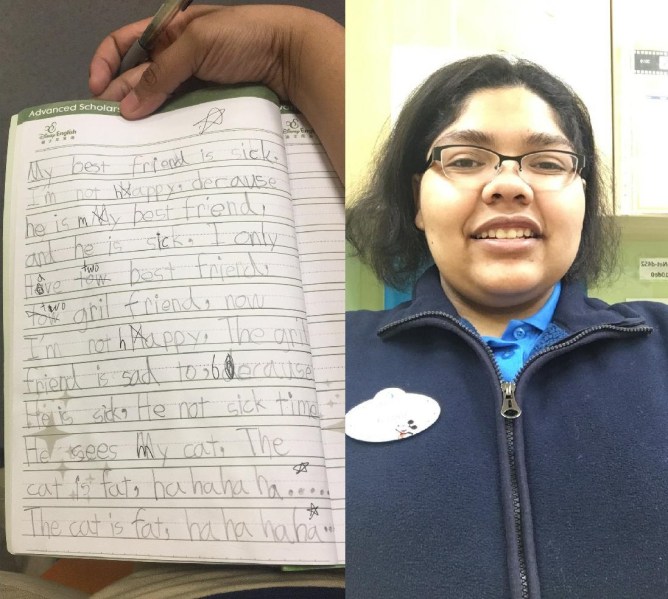 Advanced Schola
Disney English
My best friend is sick.
I'm not happy. decause
he is my best friend,
and he is sick. I only
two
Have tow best friend,
two
tow gril friend, now
I'm not happy. The gril
friend is sad to, because
He is sick, He not sick time
He sees My cat. The
cat is fat, ha ha ha ha......
The cat is fat, ha ha ha ha...